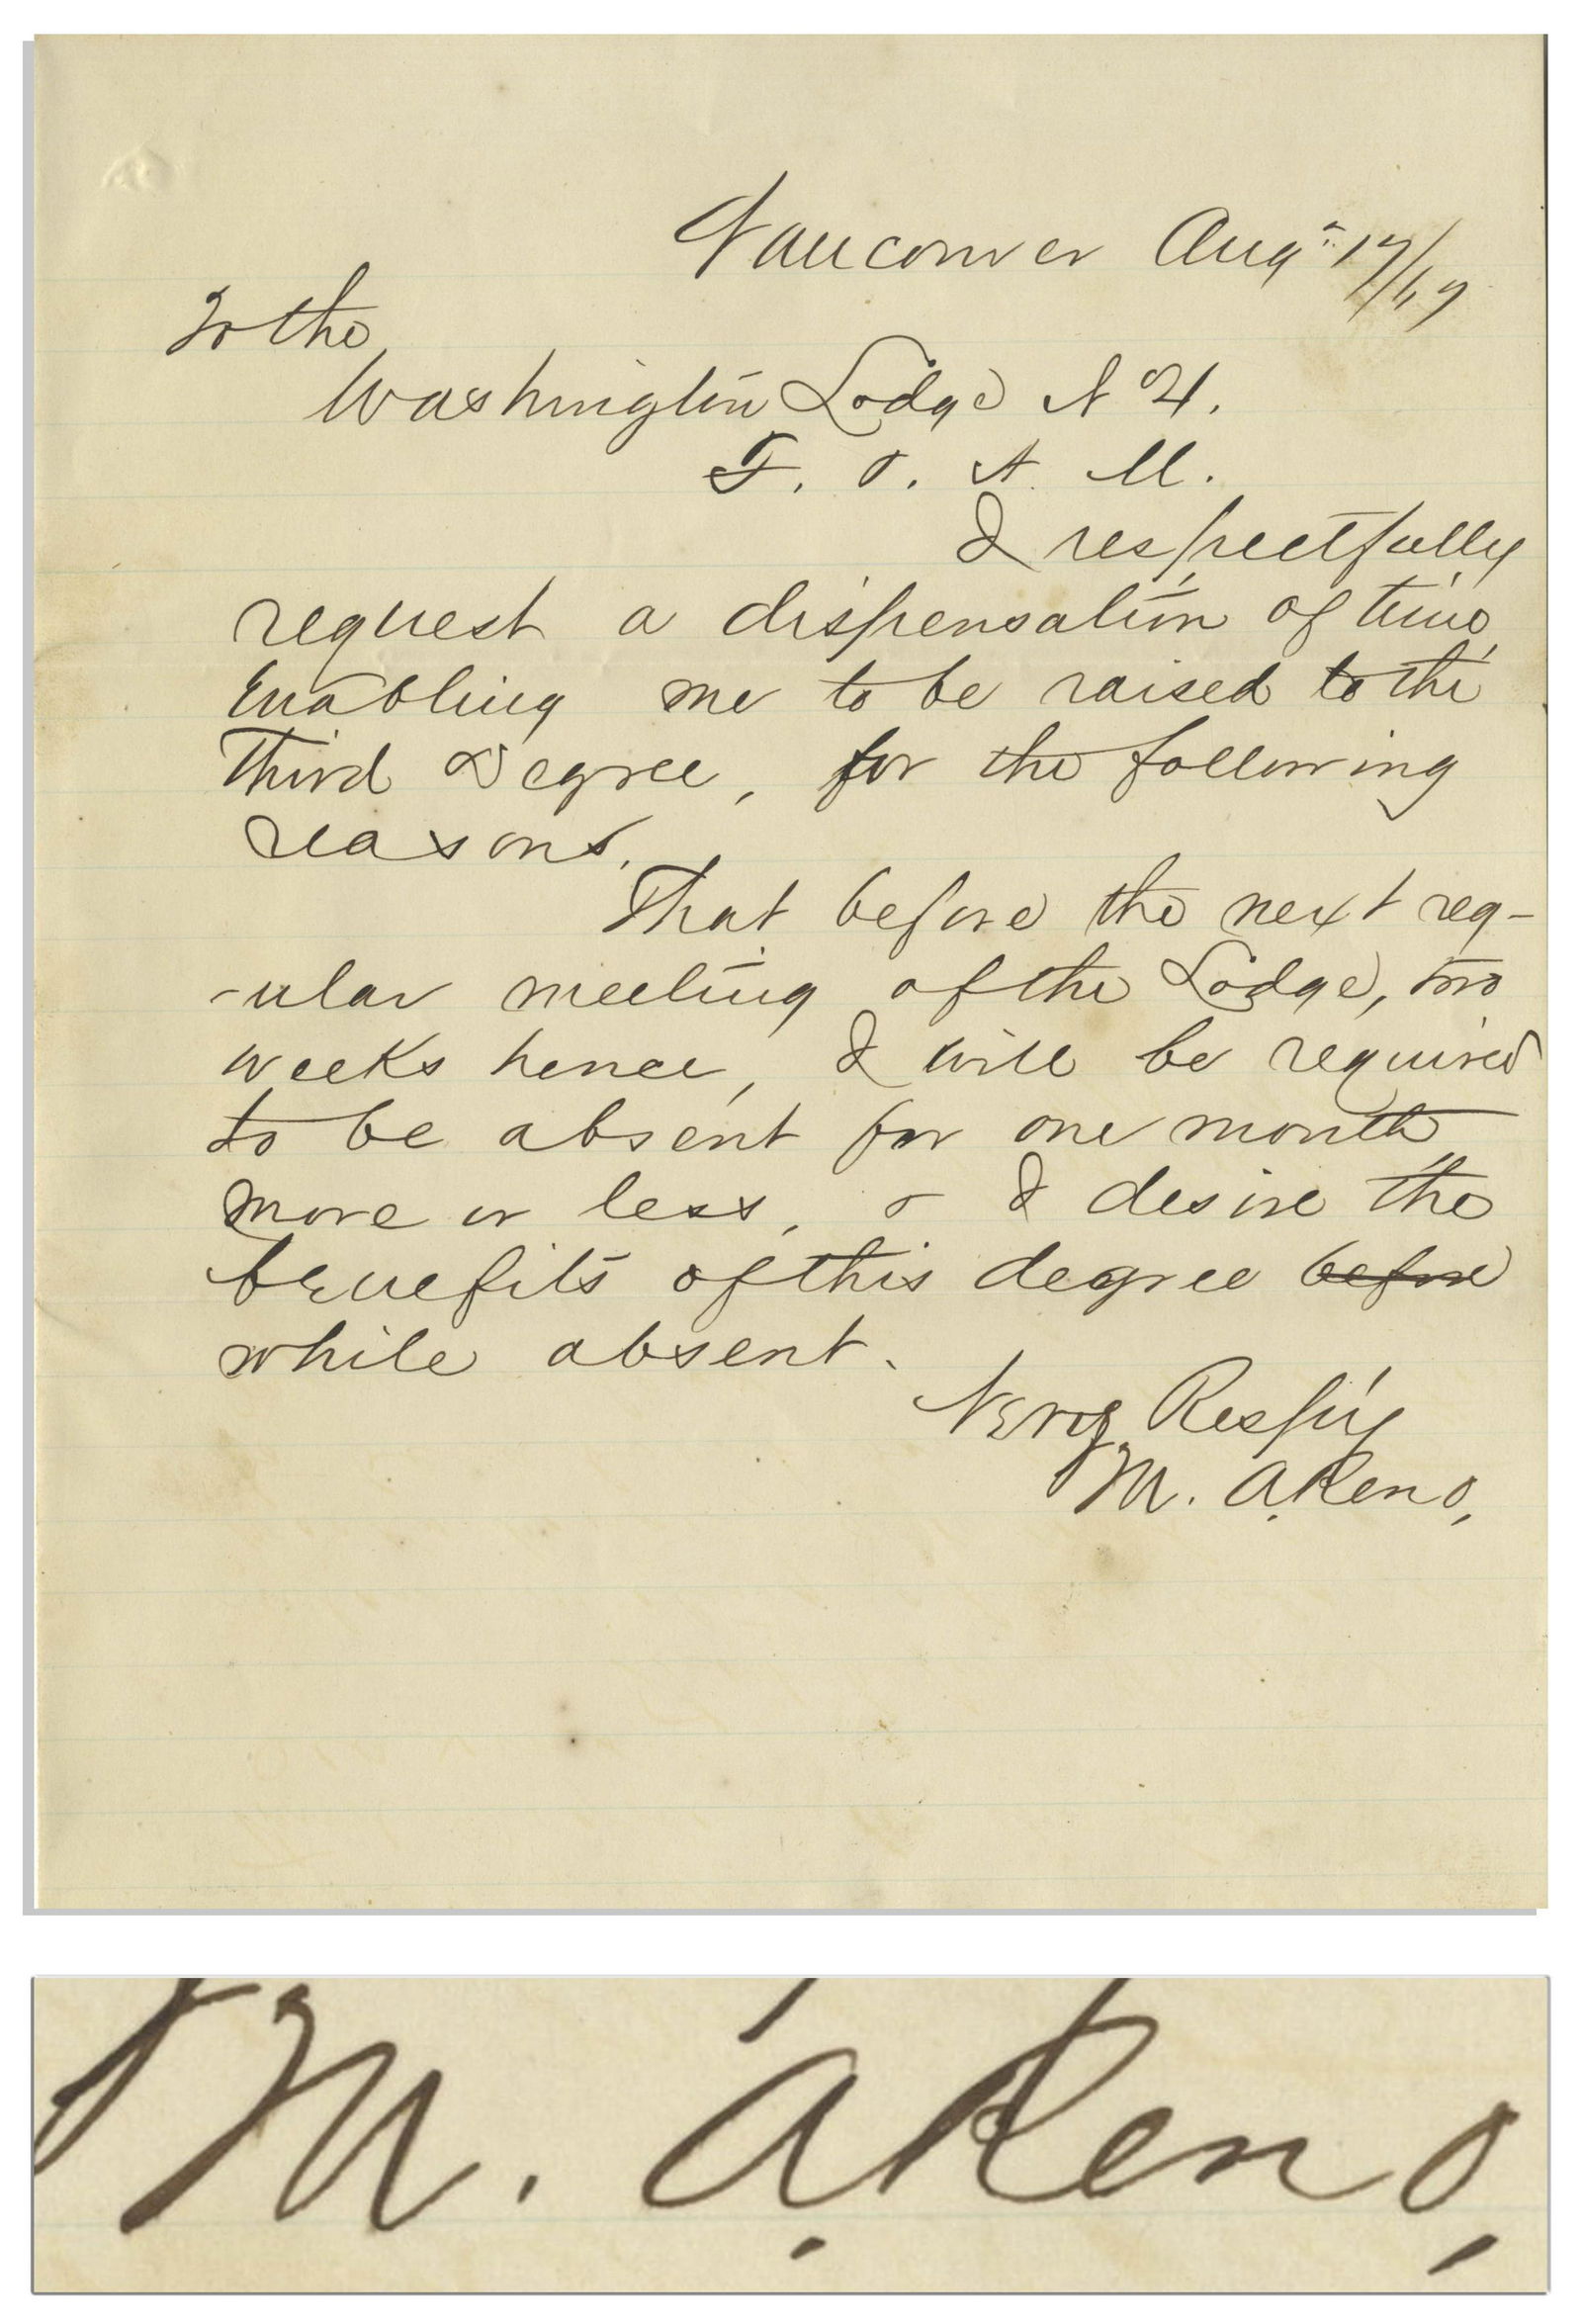 Vancouver Aug 17/67
To the
Washington Lodge No 4.
F. & A. M.
I respectfully
request a dispensation of time,
enabling me to be raised to the
Third Degree, for the following
reasons.
That before the next reg-
-ular meeting of the Lodge, two
weeks hence, I will be required
to be absent for one month
more or less, & I desire the
benefits of this degree before
while absent.
Very Respfy
M. A. Reno,
M. A. Reno,